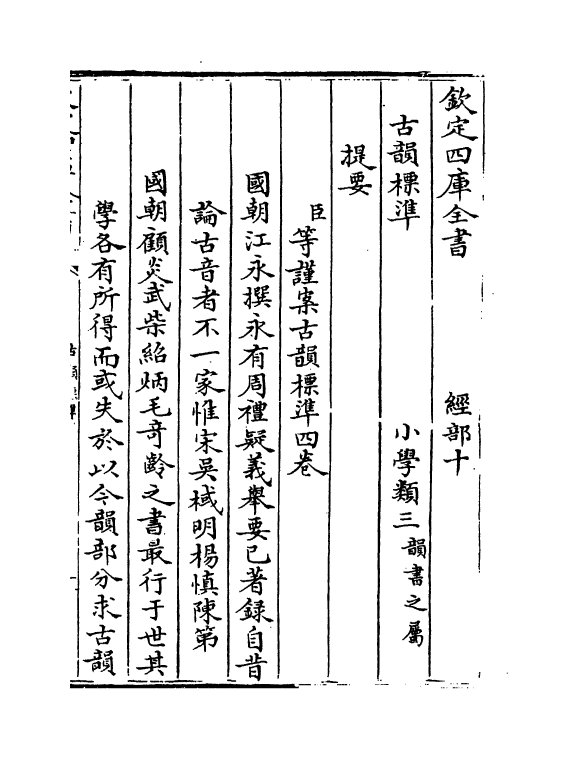 欽定四庫全書　經部十
古韻標準　小學類三韻書之屬
提要
臣等謹案古韻標準四卷
國朝江永撰永有周禮疑義舉要已著録自昔
論古音者不一家惟宋吳棫明楊慎陳第
國朝顧炎武柴紹炳毛奇齡之書最行于世其
學各有所得而或失於以今韻部分求古韻